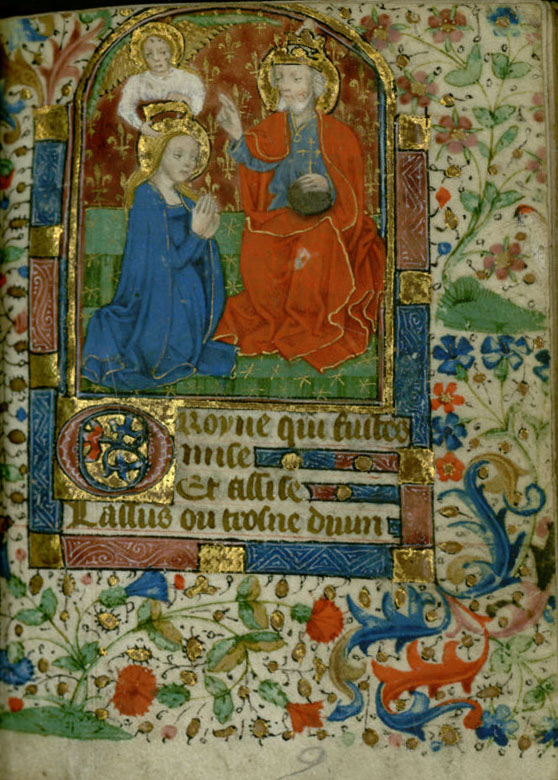 O royne qui fustes
mise
Et assise
Lassus ou trosne divin
9